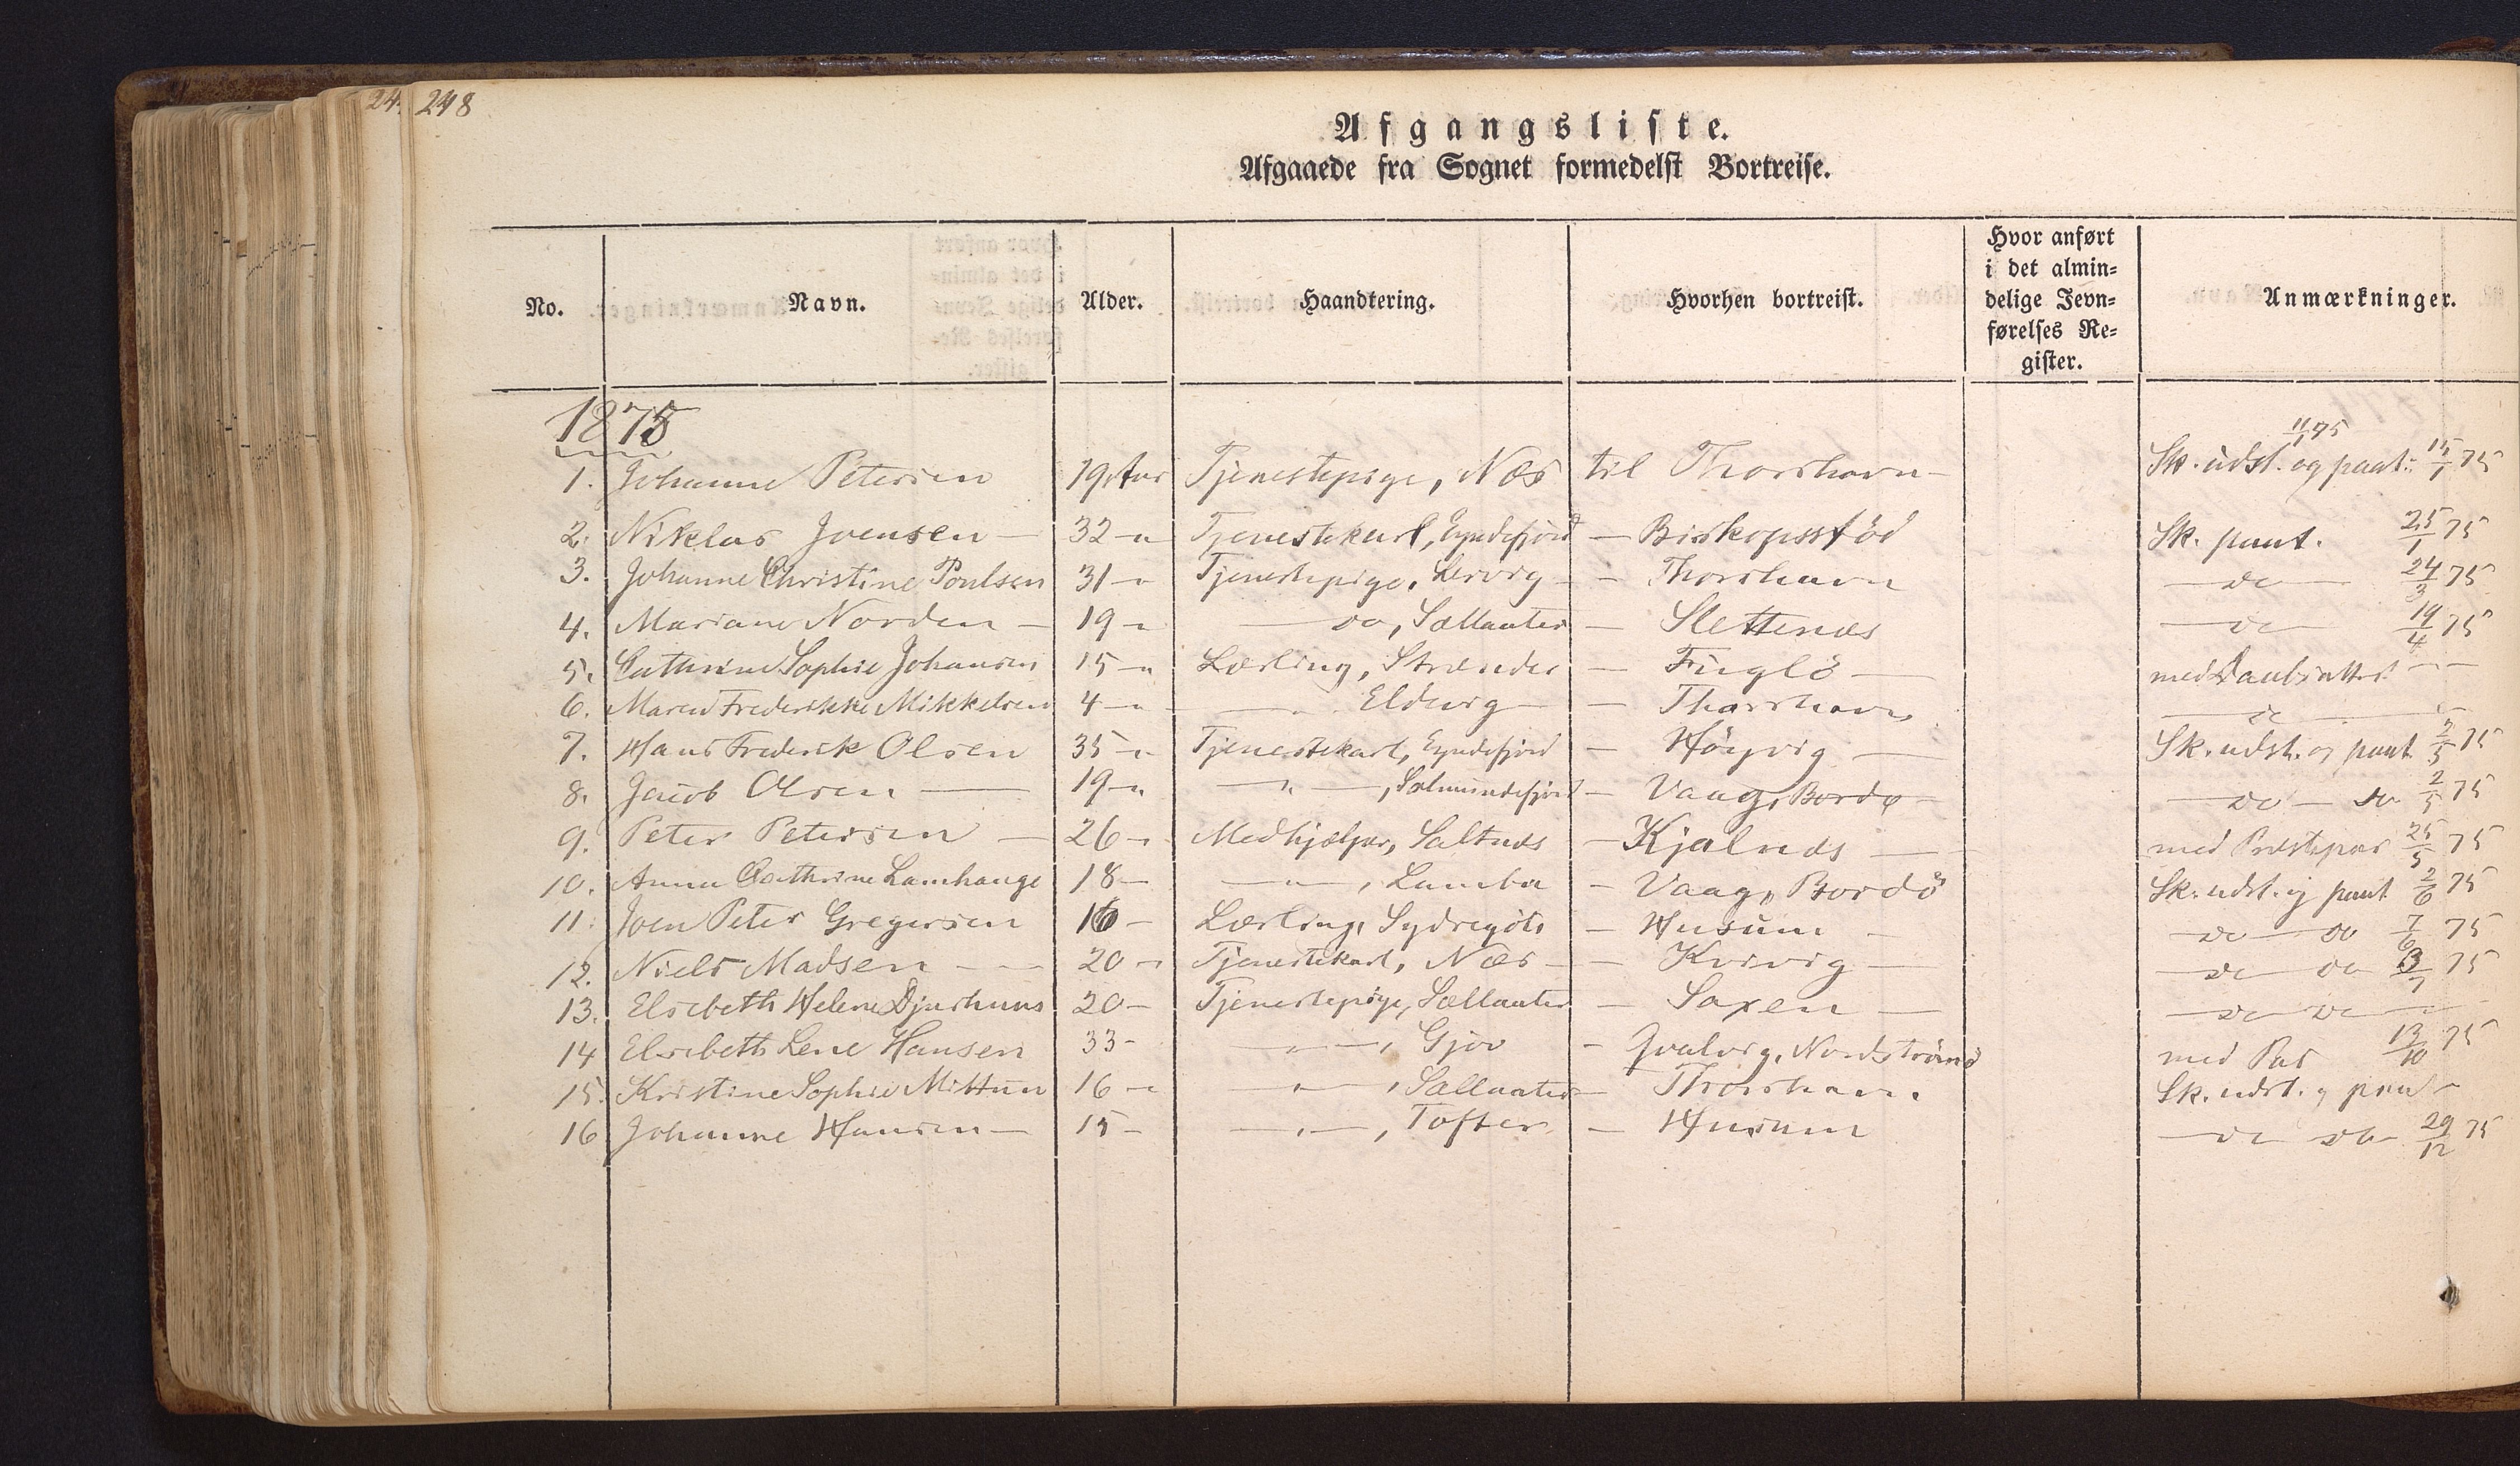 248
Afgangsliste.
Afgaaede fra Sognet formedelst Bortreise.
No. Navn. Alder. Haandtering. Hvorhen bortreist. Hvor anført i det almin= delige Jevn= førelses Re= gister. Anmærkninger.
1875
1. Johanne Petersen 19 Aar Tjenestepige, Næs til Thorshavn — Sk. udst. 11/1 75 og paat. 15/1 75
2. Niklas Joensen — 32 — " Tjenestekarl, Eyndefjord — Biskopsstöd Sk. paat. 25/1 75
3. Johanne Christine Poulsen 31 — " Tjenestepige, Lervig — Thorshavn — do — 24/3 75
4. Mariane Norden — 19 — " — do, Sællanter — Slettenæs — do — 19/4 75
5. Cathrine Sophie Johansen 15 — " Lærling, Strænder — Fuglö — med Daubsattest — —
6. Maren Frederikke Mikkelsen 4 — " — Eldevig — Thorshavn — do —
7. Hans Frederik Olsen 35 — " Tjenestekarl, Eyndefjord — Höyvig — Sk. udst. og paat. 2/5 75
8. Jacob Olsen — 19 — " — " —, Salmundefjord — Vaag, Bordø — do — do 2/5 75
9. Peter Petersen — 26 — " Medhjælper, Saltnæs — Kjalnæs — med Præstepas 25/5 75
10. Anna Cathrine Lamhauge 18 — — " —, Lamba — Vaag, Bordö Sk. udst. og paat. 2/6 75
11. Joen Peter Gregersen 16 — Lærling, Sydregöte — Husum — do — do 7/6 75
12. Niels Madsen — 20 — " Tjenestekarl, Næs — Kvivig — do do 3/7 75
13. Elsebeth Helene Djurhuus 20 — Tjenestepige, Sællanter — Saxen — do do —
14 Elsebeth Lene Hansen 33 — — " —, Gjov — Qvalvig, Nordströmö med Pas 13/10 75
15. Kristine Sophie Mittun 16 — " — " —, Sællanter — Thorshavn. Sk. udst. og paat —
16 Johanne Hansen — 15 — — " —, Tofter — Husum — do do 29/12 75